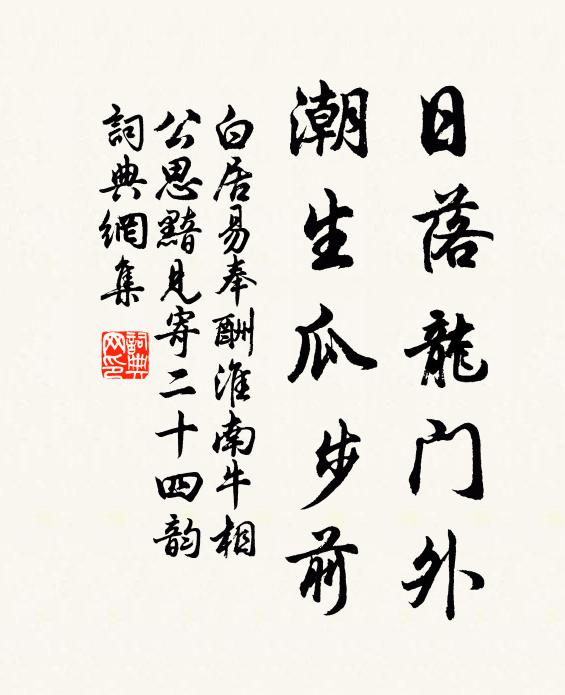 日落龍门外
潮生瓜步前
白居易奉酬淮南牛相
公思黯见寄二十四韵
詞典網集
詞典
网印